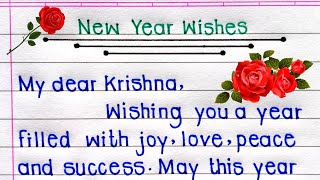 New Year Wishes
My dear Krishna,
Wishing you a year
filled with joy, love, peace
and success. May this year